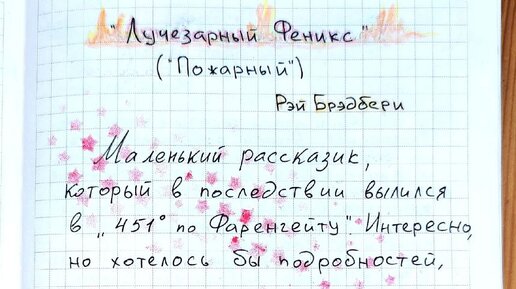 "Лучезарный Феникс"
("Пожарный")
Рэй Брэдбери
Маленький рассказик,
который в последствии вылился
в „451° по Фаренгейту". Интересно,
но хотелось бы подробностей,